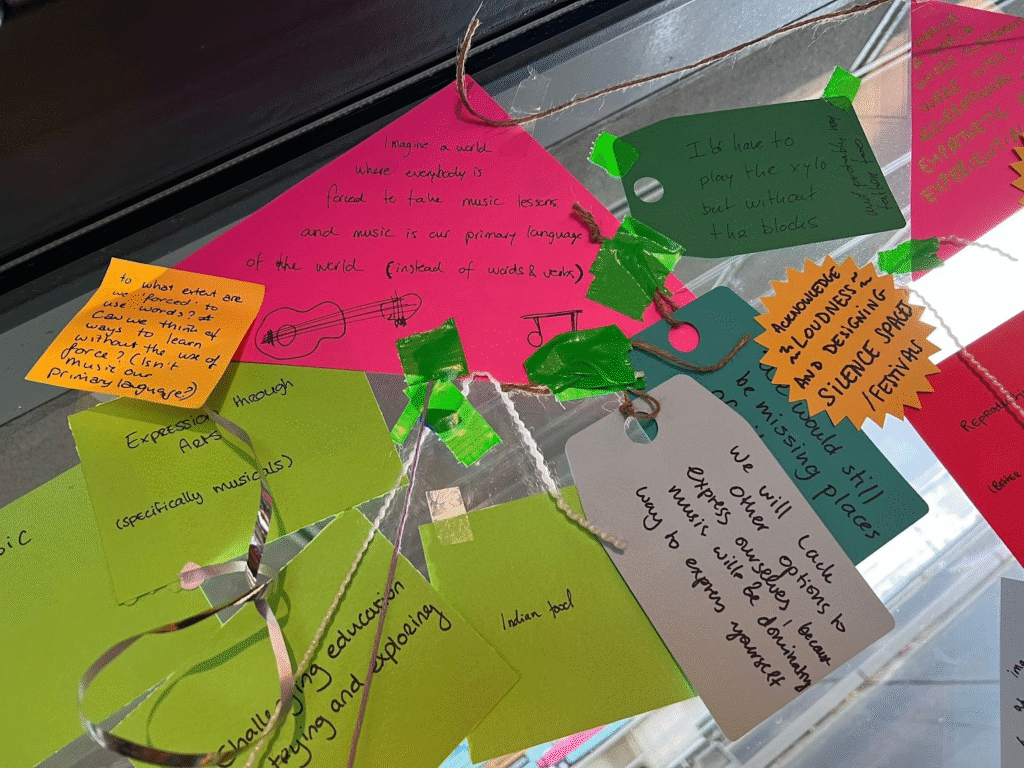 Imagine a world
where everybody is
forced to take music lessons.
and music is our primary language
of the world (instead of words & verbs)
I'd have to
play the xylo
but without
the blocks
to what extent are
we "forced" to
use words?
Can we think of
ways to learn
without the use of
force? (Isn't
music our
primary language?)
ACKNOWLEDGE
~ LOUDNESS ~
AND DESIGNING
SILENCE SPACES
/FESTIVALS
would still
be missing places
We will lack
other options to
express ourselves, because
music will be dominating
way to express yourself
Expression through
Arts
(specifically musicals)
Indian food
Challenging education
trying and exploring
EMPATHETIC